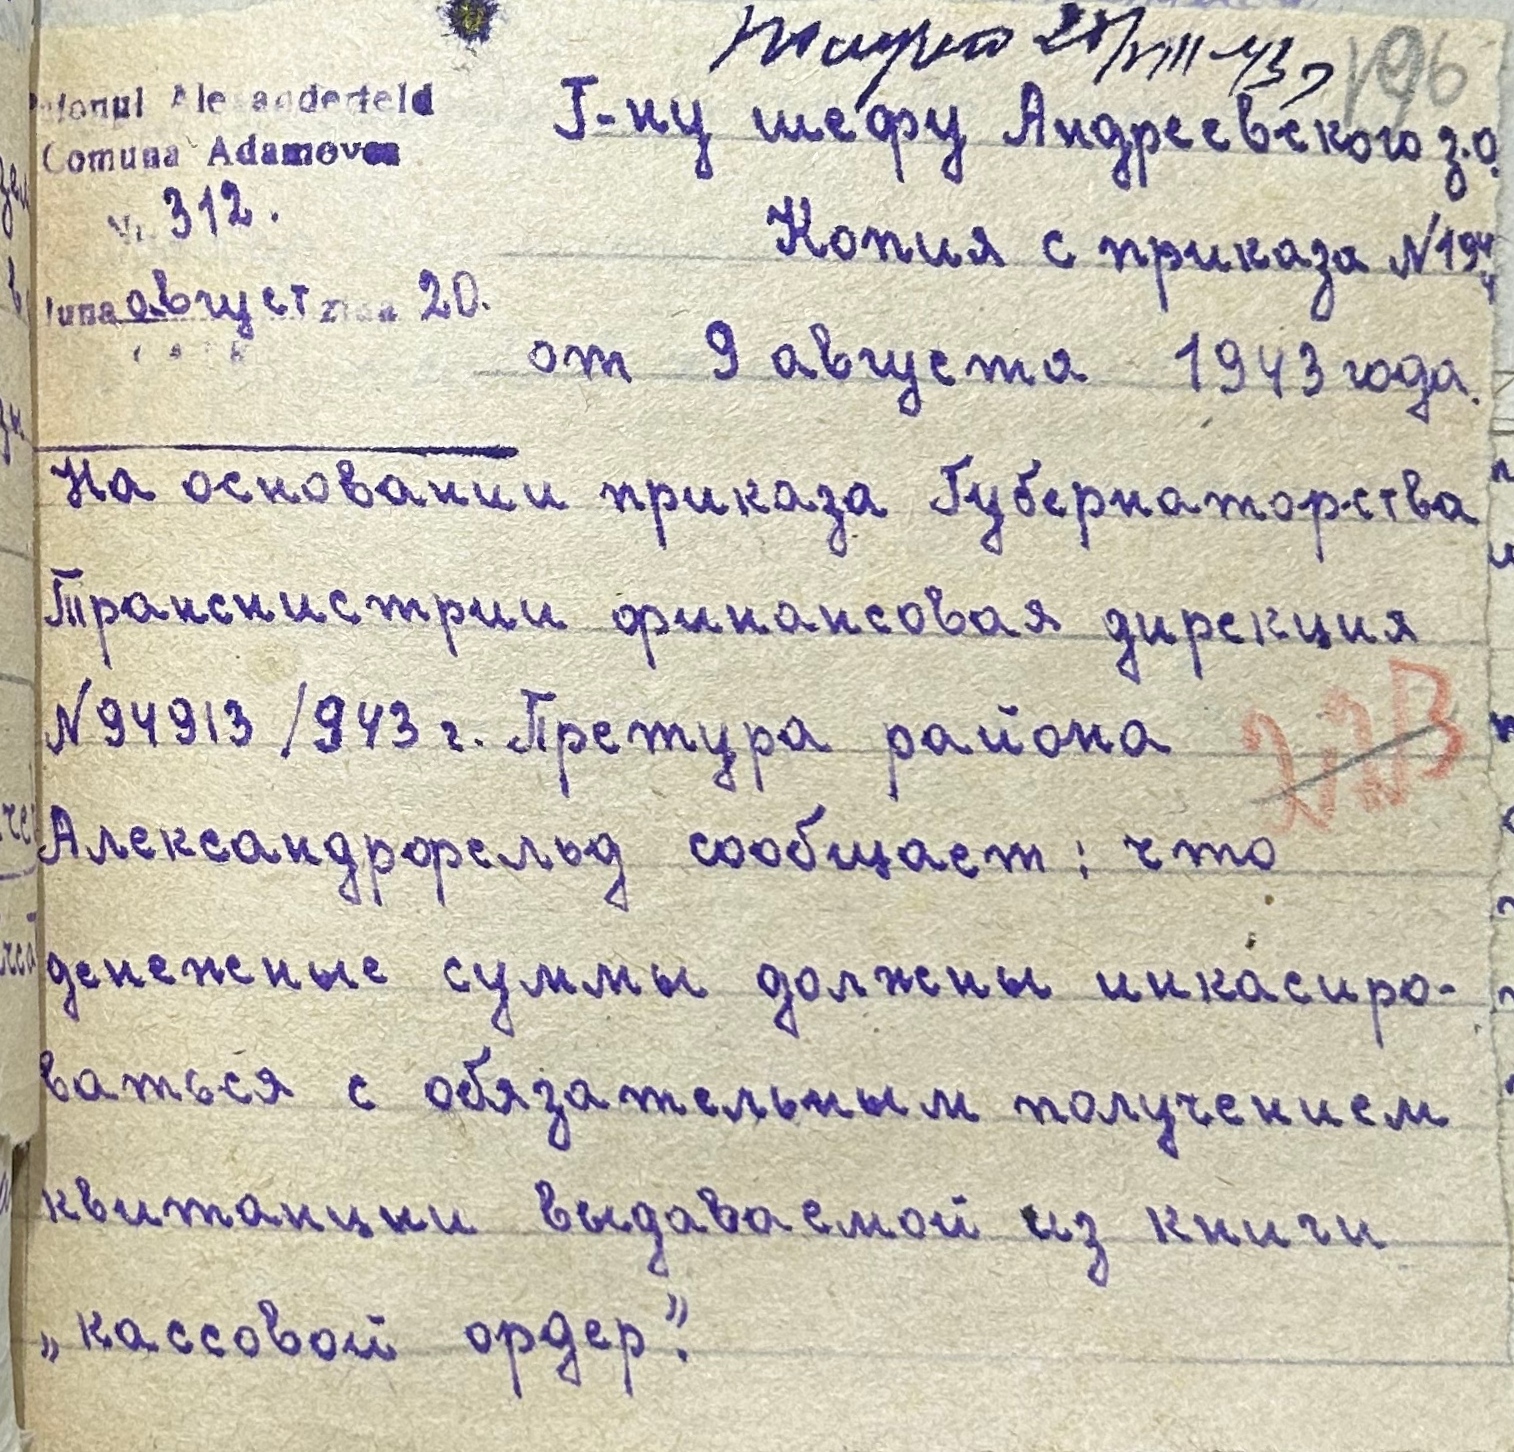 28/VIII-43
196
Raionul Alexanderfeld
Comuna Adamovca
Г-ну шефу Андреевского з.о.
Nr. 312.
Копия с приказа №1944
luna август ziua 20.
от 9 августа 1943 года.
На основании приказа Губернаторства
Транснистрии финансовая дирекция
№94913/943 г. Претура района
Александрфельд сообщает: что
денежные суммы должны инкасиро-
ваться с обязательным получением
квитанции выдаваемой из книги
„кассовой ордер".